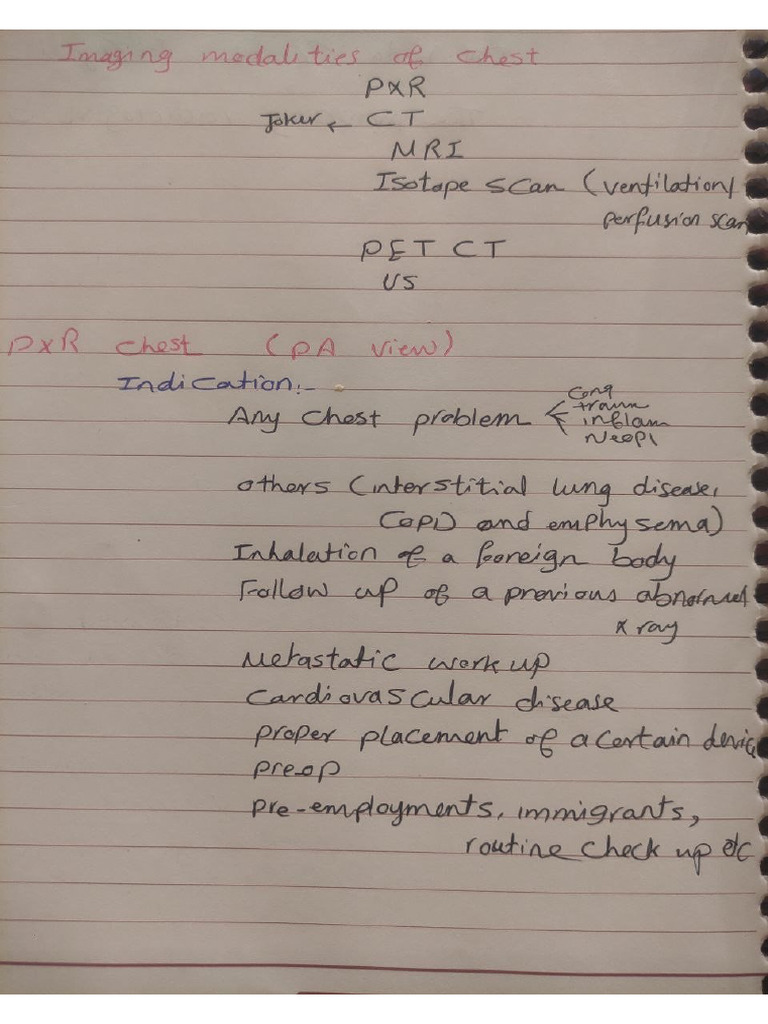 Imaging modalities of chest
PXR
Joker ← CT
MRI
Isotope scan (ventilation/
perfusion scan
PET CT
US
PXR chest (PA view)
Indication:-
Any chest problem
Cong
traum
inflam
Neopl
others (interstitial lung disease,
COPD and emphysema)
Inhalation of a foreign body
Follow up of a previous abnormal
x ray
Metastatic work up
Cardiovascular disease
proper placement of a certain device
pre-op
pre-employments, immigrants,
routine check up etc